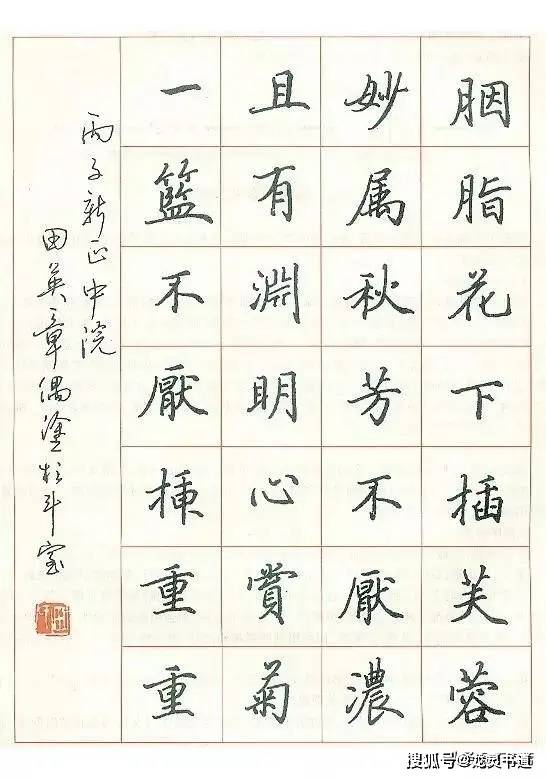 胭脂花下插芙蓉
妙属秋芳不厭濃
且有淵明心賞菊
一籃不厭挿重重
丙子新正中浣
田英章偶塗於斗室
搜狐号@龙灵书道